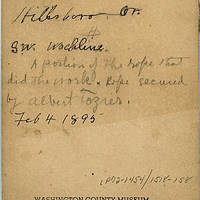 Hillsboro Or.
#
G.W. Wachline.
A portion of the rope that
did the work. Rope secured
by Albert Tozier.
Feb 4 1895
P92-1454/1518-158
WASHINGTON COUNTY MUSEUM